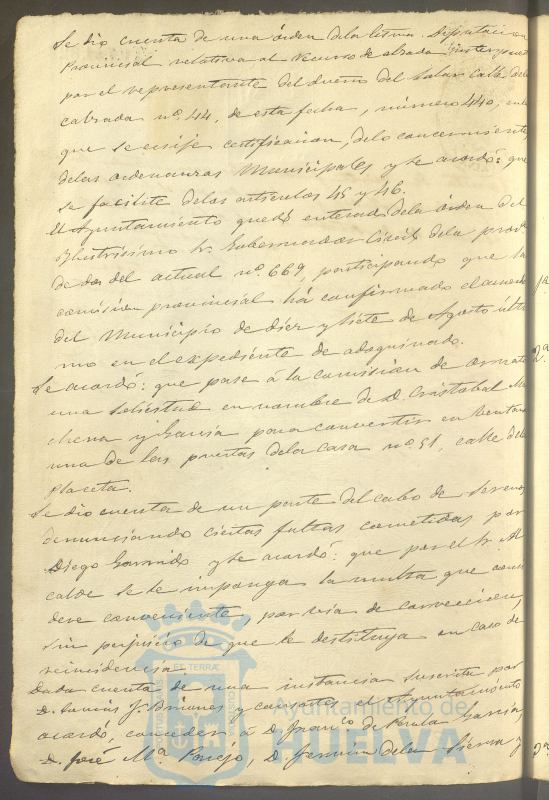 Se dio cuenta de una órden dela Excma. Diputacion
Provincial relativa al recurso de alzada interpues
por el representante del dueño del Solar calle dela
calzada nº 44, de esta fecha, número 440, en la
que se exije certificacion, delo concerniente
delas ordenanzas Municipales y se acordó: que
se facilite delos articulos 45 y 46.
El Ayuntamiento quedó enterado dela órden del
Ilustrisimo Sr. Gobernador Civil dela prov.
de dos del actual nº 669, participando que la
comision provincial há confirmado el acuerdo
del Municipio de diez y siete de Agosto últi
mo en el expediente de adoquinado.
Se acordó: que pase á la comision de ornato
una solicitud en nombre de D. Cristobal
chena y Garcia para convertir en ventana
una de las puertas dela casa nº 51, calle dela
placeta.
Se dio cuenta de un parte del cabo de Serenos
denunciando ciertas faltas cometidas por
Diego Garrido y se acordó: que por el Sr. Al
calde se le imponga la multa que consi
dere conveniente, por via de correccion,
sin perjuicio de que le destituya en caso de
reincidencia.
Dada cuenta de una instancia suscrita por
D. J. Briones y consortes el Ayuntamiento
acordó, conceder á D. Franco de Paula Garcia,
D. José Mª Parejo, D. Fermin dela Sierra y
1ª
2ª
2ª
ET TERRÆ
Ayuntamiento de
HUELVA